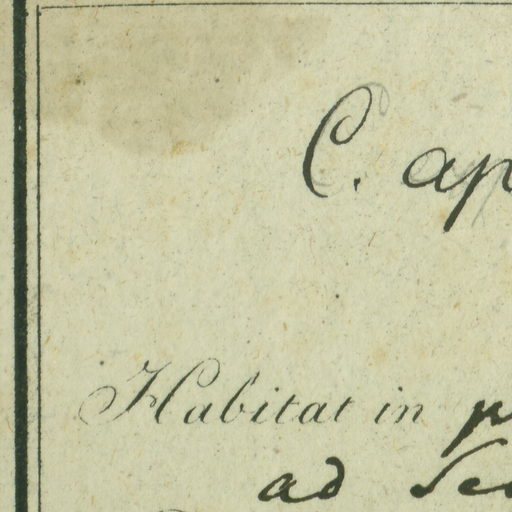 C. ap
Habitat in p
ad Se